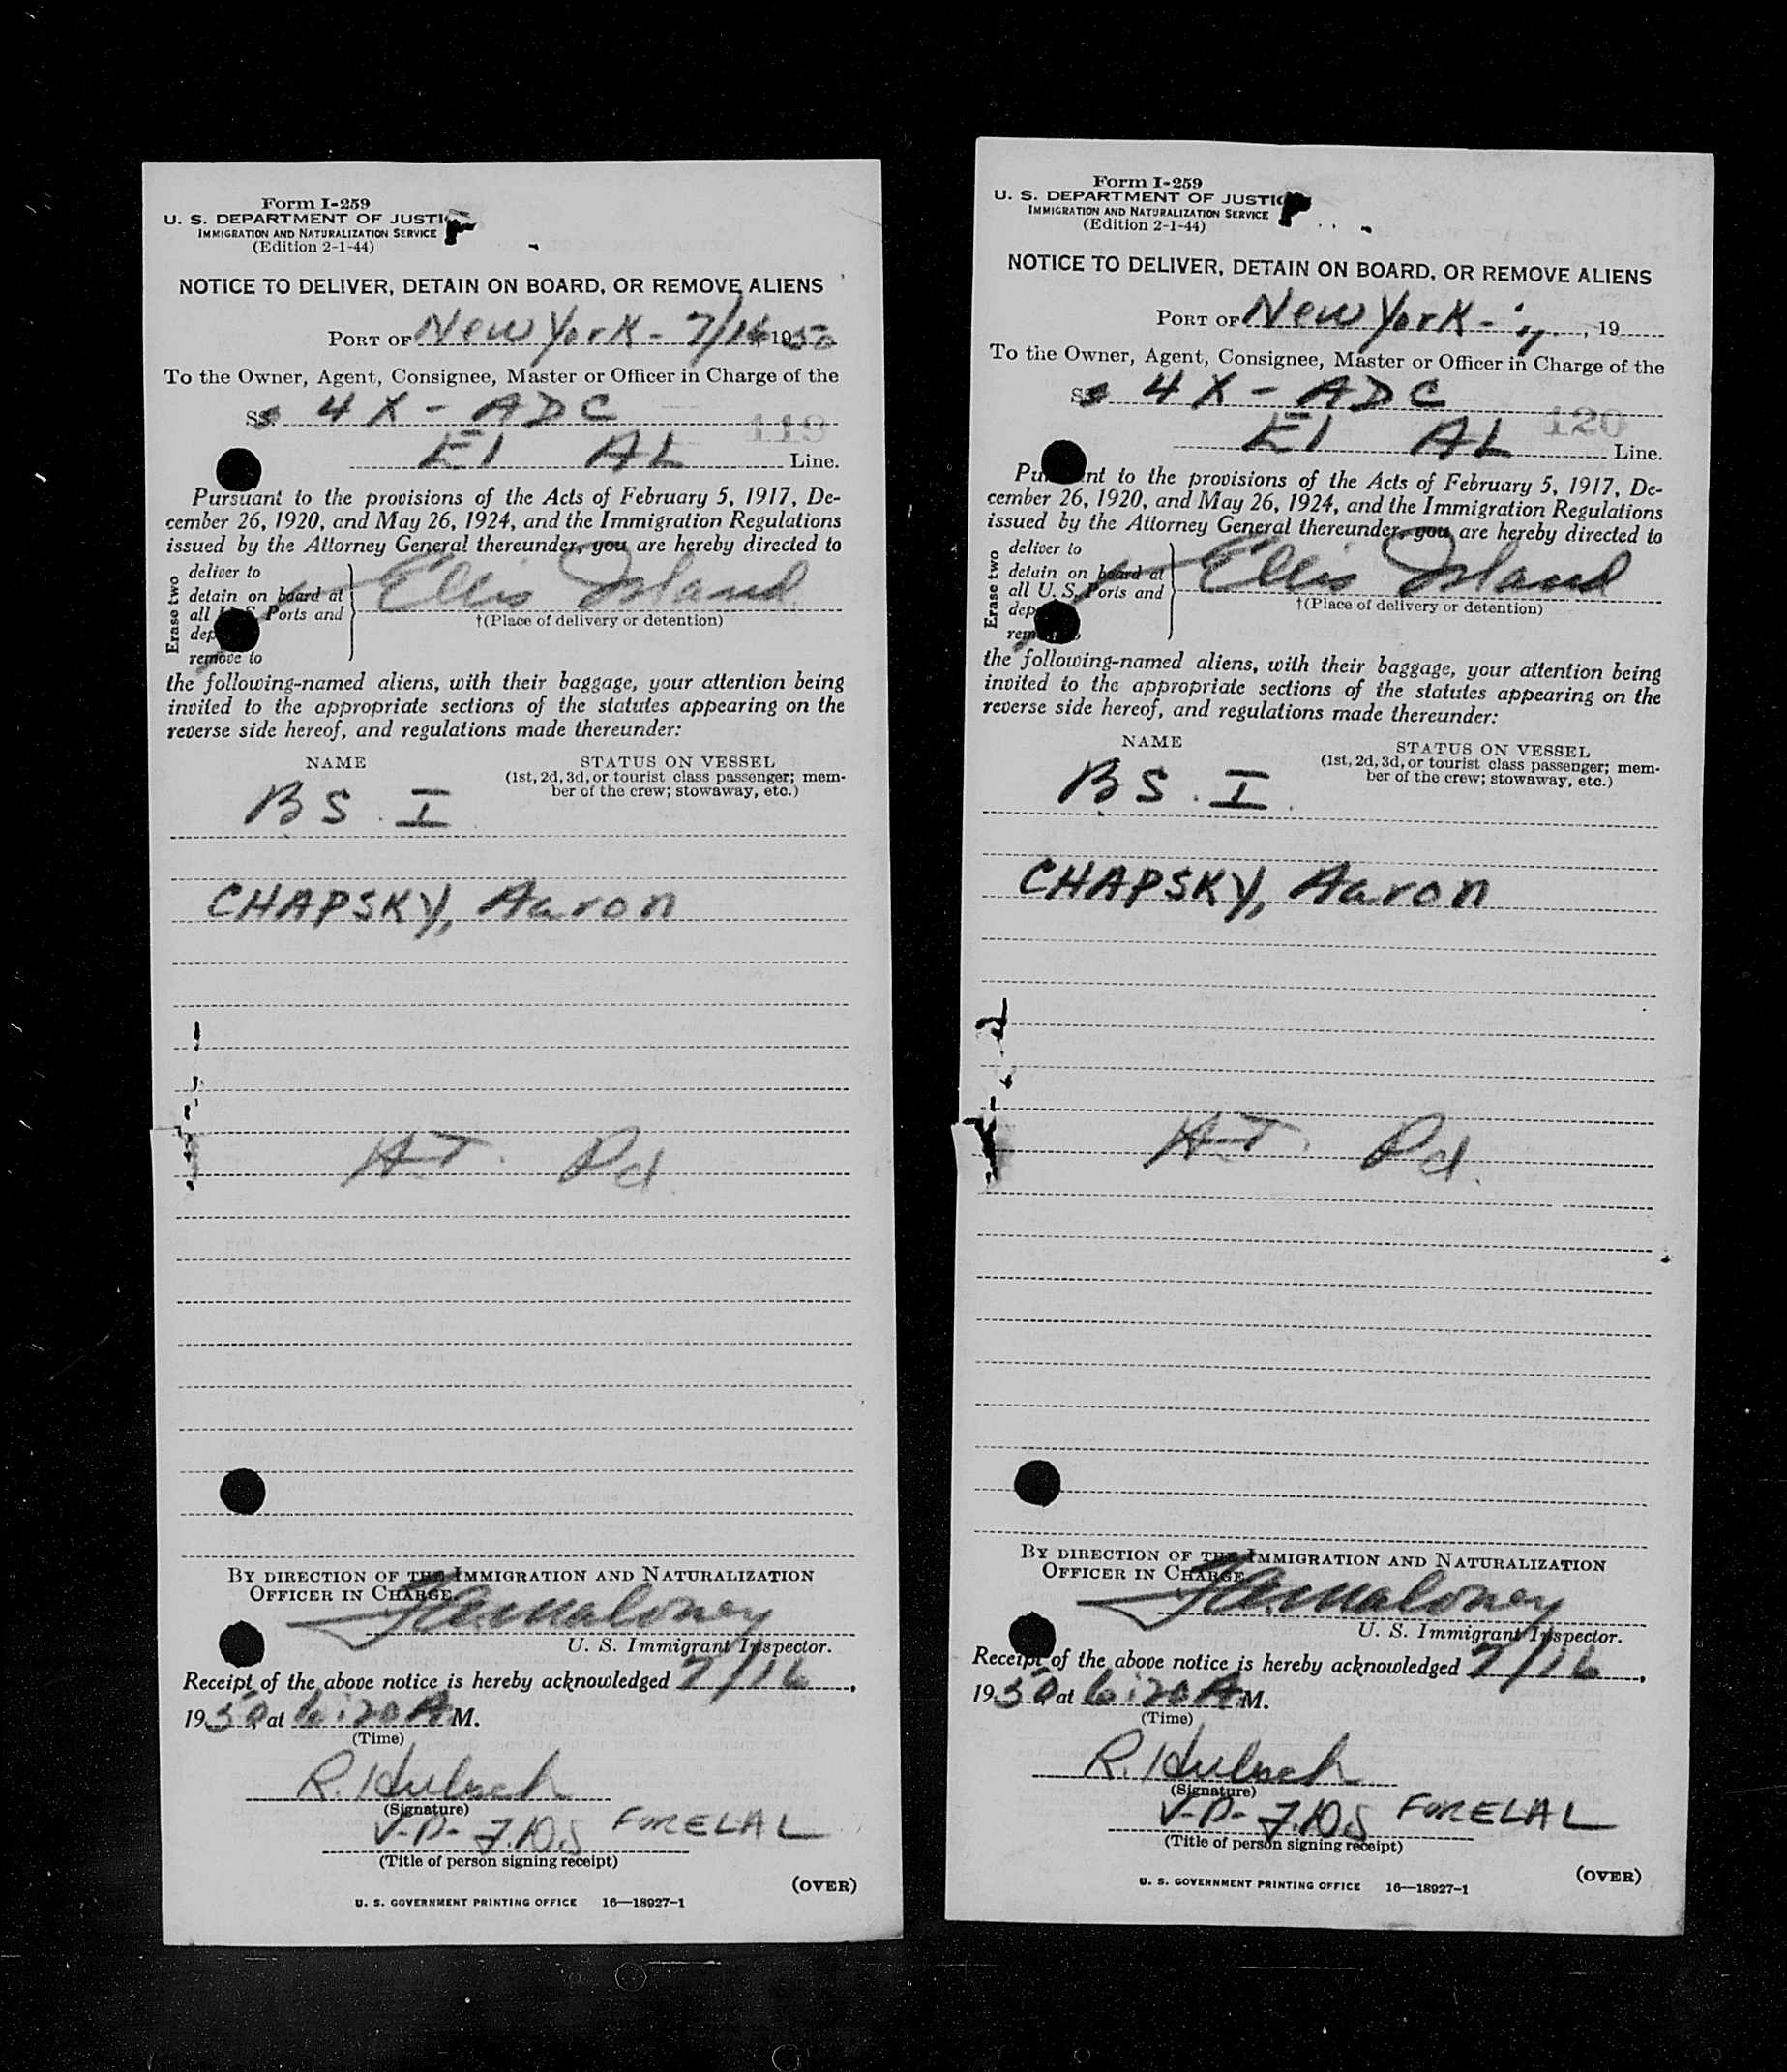 Form I-259
U. S. DEPARTMENT OF JUSTI
IMMIGRATION AND NATURALIZATION SERVICE
(Edition 2-1-44)
NOTICE TO DELIVER, DETAIN ON BOARD, OR REMOVE ALIENS
PORT OF New York - 7/16 1950
To the Owner, Agent, Consignee, Master or Officer in Charge of the
SS 4X-ADC
119
El AL Line.
Pursuant to the provisions of the Acts of February 5, 1917, De-
cember 26, 1920, and May 26, 1924, and the Immigration Regulations
issued by the Attorney General thereunder, you are hereby directed to
Erase two
deliver to
detain on board at
all U. S. Ports and
dep
remove to
Ellis Island
†(Place of delivery or detention)
the following-named aliens, with their baggage, your attention being
invited to the appropriate sections of the statutes appearing on the
reverse side hereof, and regulations made thereunder:
NAME
STATUS ON VESSEL
(1st, 2d, 3d, or tourist class passenger; mem-
ber of the crew; stowaway, etc.)
BS.I
CHAPSKY, Aaron
HT. Pd.
BY DIRECTION OF THE IMMIGRATION AND NATURALIZATION
OFFICER IN CHARGE.
Maloney
U. S. Immigrant Inspector.
Receipt of the above notice is hereby acknowledged 7/16,
1950 at 6:20 A M.
(Time)
R.
(Signature)
V-P- FOR ELAL
(Title of person signing receipt)
(OVER)
U. S. GOVERNMENT PRINTING OFFICE 16—18927-1
Form I-259
U. S. DEPARTMENT OF JUSTIC
IMMIGRATION AND NATURALIZATION SERVICE
(Edition 2-1-44)
NOTICE TO DELIVER, DETAIN ON BOARD, OR REMOVE ALIENS
PORT OF New York - , 19
To the Owner, Agent, Consignee, Master or Officer in Charge of the
SS 4X-ADC
120
El AL Line.
Pu nt to the provisions of the Acts of February 5, 1917, De-
cember 26, 1920, and May 26, 1924, and the Immigration Regulations
issued by the Attorney General thereunder, you are hereby directed to
Erase two
deliver to
detain on board at
all U. S. Ports and
dep
rem
Ellis Island
†(Place of delivery or detention)
the following-named aliens, with their baggage, your attention being
invited to the appropriate sections of the statutes appearing on the
reverse side hereof, and regulations made thereunder:
NAME
STATUS ON VESSEL
(1st, 2d, 3d, or tourist class passenger; mem-
ber of the crew; stowaway, etc.)
BS.I
CHAPSKY, Aaron
HT. Pd.
BY DIRECTION OF THE IMMIGRATION AND NATURALIZATION
OFFICER IN CHARGE
Maloney
U. S. Immigrant Inspector.
Receipt of the above notice is hereby acknowledged 7/16,
1950 at 6:20 A M.
(Time)
R.
(Signature)
V-P- FOR ELAL
(Title of person signing receipt)
(OVER)
U. S. GOVERNMENT PRINTING OFFICE 16—18927-1